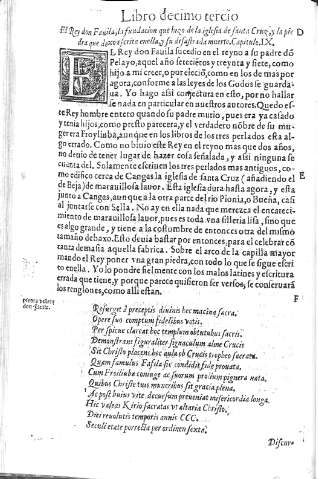 Libro decimo tercio
El Rey don Fauila, la fundacion que hizo de la iglesia de santa Cruz, y la pie D
dra que dexo escrita en ella, y su desastrada muerte. Capitulo. IX.
EL Rey don Fauila sucedio en el reyno a su padre dō
Pelayo, aquel año setecientos y treynta y siete, como
hijo a mi creer, o por eleciō, como en los de mas por
agora, conforme a las leyes de los Godos se guarda-
ua. Yo hago assi conjetura en esto, por no hallar
se nada en particular en nuestros autores. Quedo es-
te Rey hombre entero quando su padre murio, pues era ya casado
y tenia hijos, como presto parecera, y el verdadero nōbre de su mu-
ger era Froyliuba, aunque en los libros de los tres perlados esta al-
go errado. Como no biuio este Rey en el reyno mas que dos años,
no deuio de tener lugar de hazer cosa señalada, y assi ninguna se
cuenta del. Solamente escriuen los tres perlados mas antiguos, co- E
mo edifico cerca de Cangas la iglesia de santa Cruz (añadiendo el
de Beja) de marauillosa lauor. Esta iglesia dura hasta agora, y esta
junto a Cangas, aunque a la otra parte del rio Pionia, o Bueña, casi
al juntarse con Sella. No ay en ella nada que merezca el encareci-
miento de marauillosa lauor, pues es toda vna silleria lisa, sino que
es algo grande, y tiene a la costumbre de entonces otra del mismo
tamaño debaxo. Esto deuia bastar por entonces, para celebrar cō
tanta demasia aquella fabrica. Sobre el arco de la capilla mayor
mando el Rey poner vna gran piedra, con todo lo que se sigue escri
to en ella. Yo lo pondre fielmente con los malos latines y escritura
errada que tiene, y porque parece quisieron ser versos, se conseruarā
los renglones, como alli estan. F
Resurgit è preceptis diuinis hec macina sacra.
Opere suo comptum fidelibus votis.
Per spicue clareat hoc templum obtutibus sacris.
Demonstrans figuraliter signaculum alme Crucis
Sit Christo placens hec aula ob Crucis tropheo sacrata.
Quam famulus Fafila sic condidit fide prouata.
Cum Froiliuba coniuge ac suorum prolium pignera nata.
Quibus Christe tuis muneribus sit gracia plena.
Ac post huius vite decursum preueniat misericordia longa.
Hic valeas Kirio sacratas vt altaria Christo.
Diei reuolutis temporis annis CCC.
Seculi etate porrecta per ordinem sexta.
Discur-